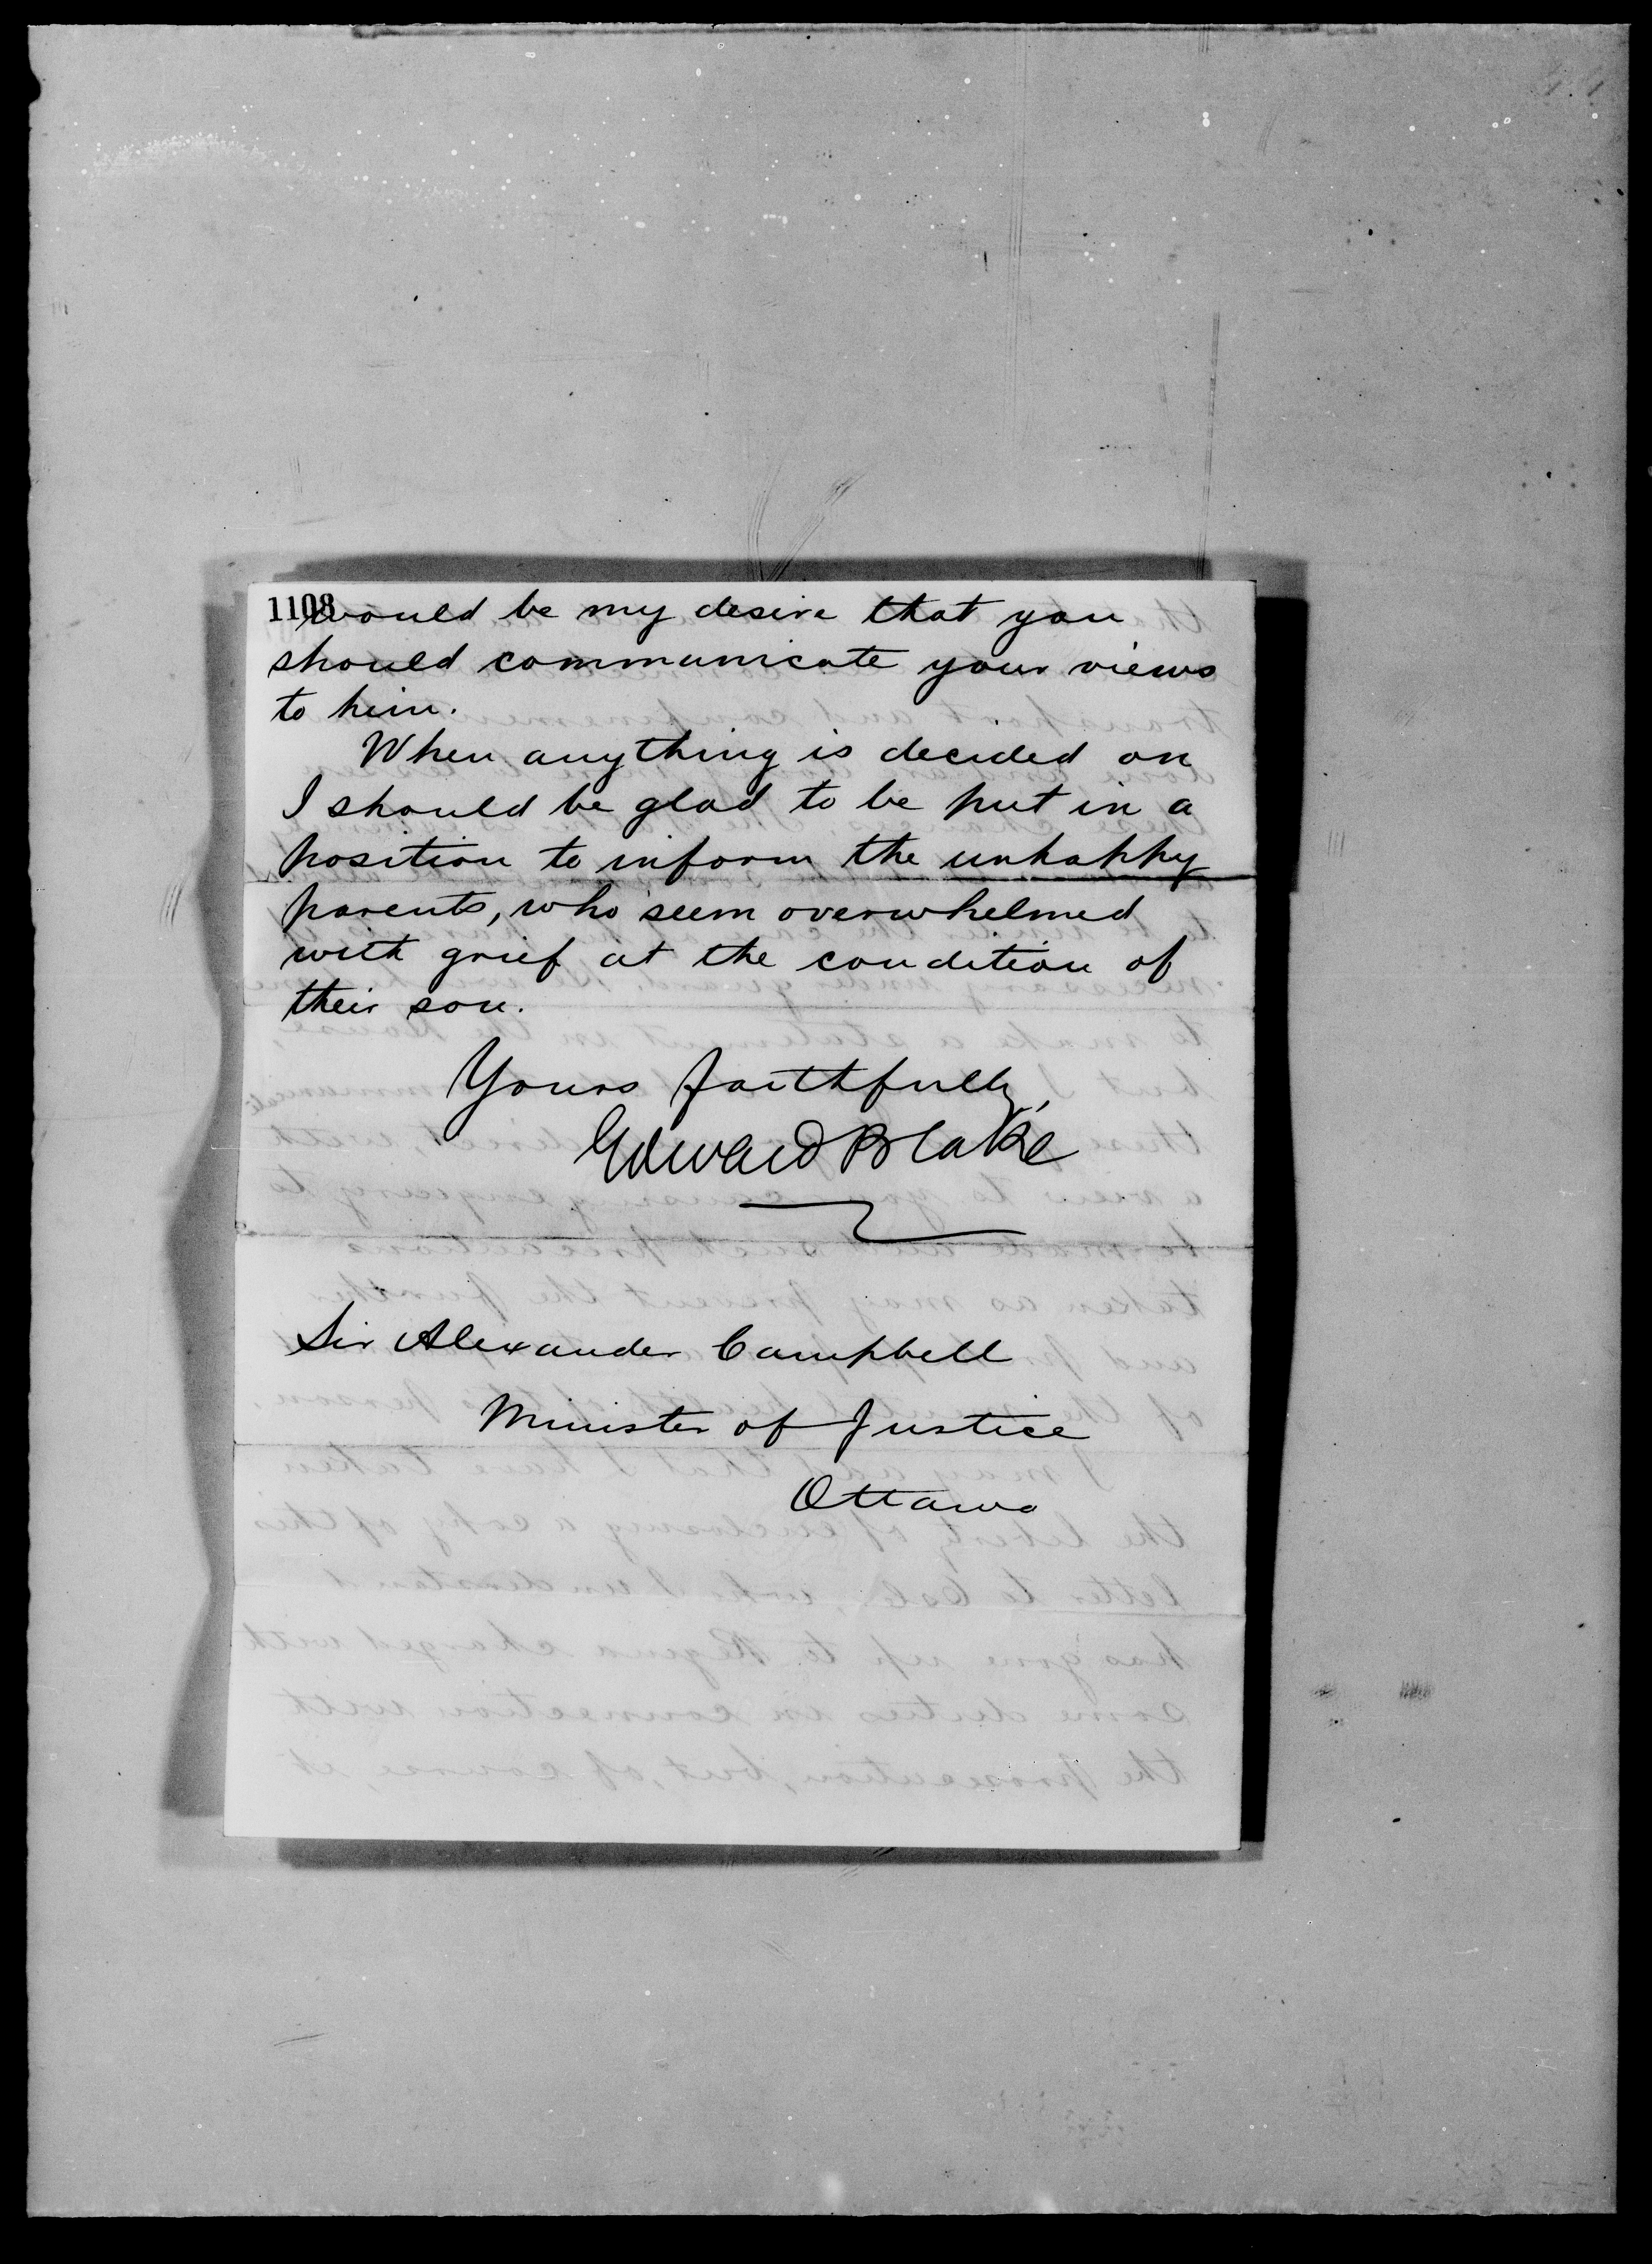 1108
would be my desire that you
should communicate your views
to him.
When anything is decided on
I should be glad to be put in a
position to inform the unhappy
parents, who seem overwhelmed
with grief at the condition of
their son.
Yours faithfully,
Edward Blake
Sir Alexander Campbell
Minister of Justice
Ottawa